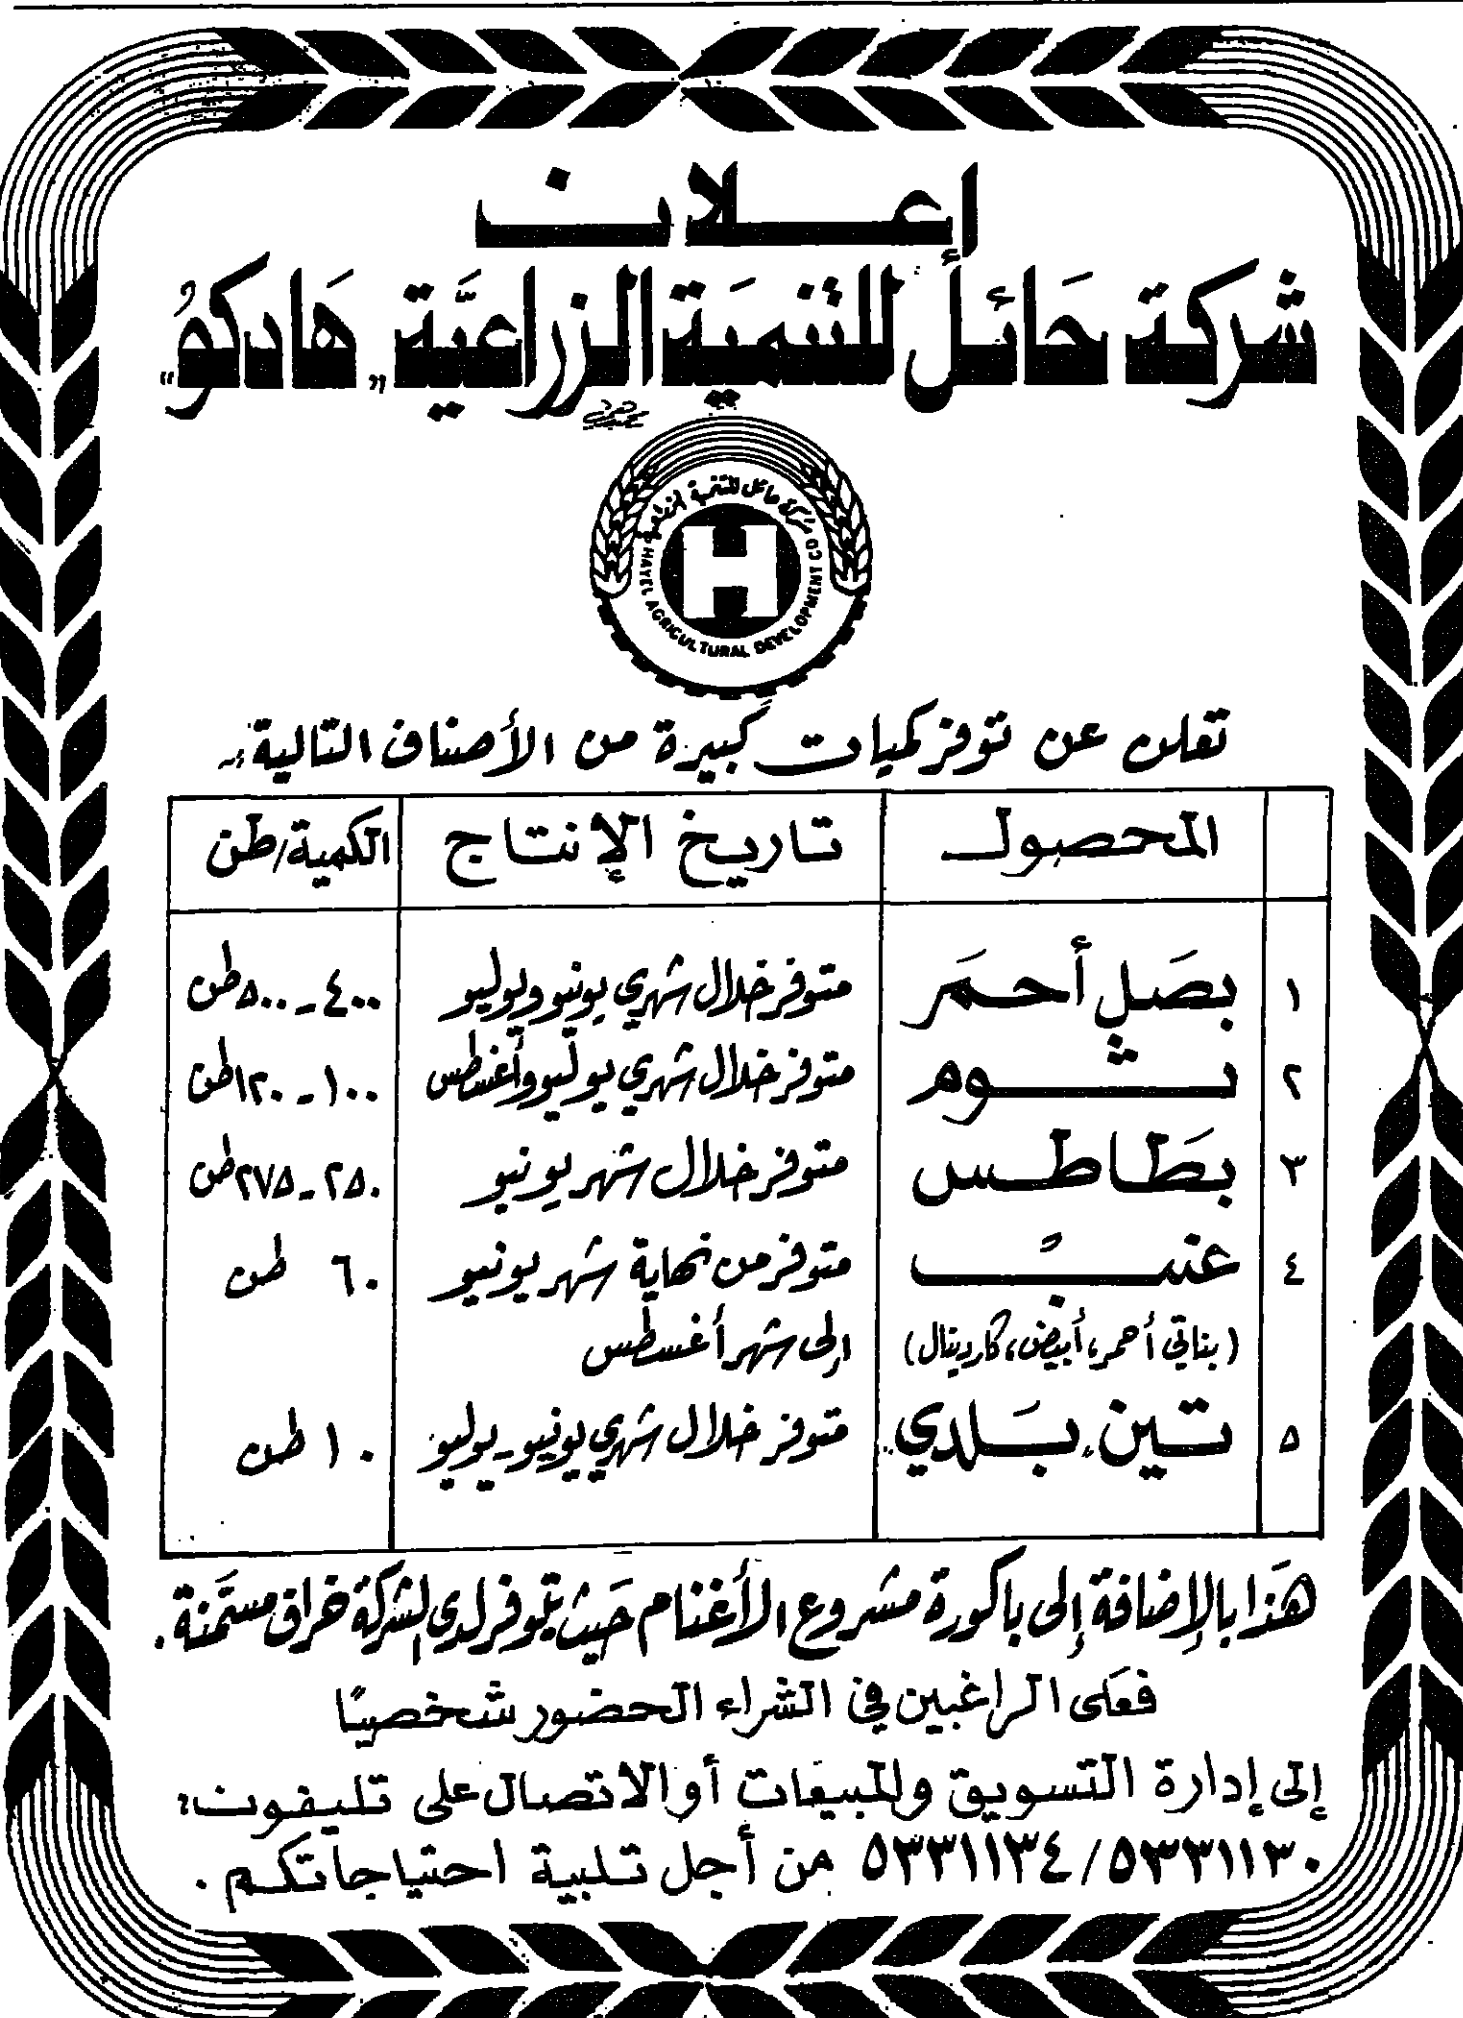 إعلان
شركة حائل للتنمية الزراعية "هادكو"
شركة حائل للتنمية الزراعية
HAYEL AGRICULTURAL DEVELOPMENT CO
H
تعلن عن توفر كميات كبيرة من الأصناف التالية:-
المحصول تاريخ الإنتاج الكمية/طن
١ بصل أحمر متوفر خلال شهري يونيو ويوليو ٤٠٠ - ٥٠٠ طن
٢ ثوم متوفر خلال شهري يوليو وأغسطس ١٠٠ - ١٢٠ طن
٣ بطاطس متوفر خلال شهر يونيو ٢٥٠ - ٢٧٥ طن
٤ عنب متوفر من نهاية شهر يونيو ٦٠ طن
(بناتي أحمر، أبيض، كاردينال) إلى شهر أغسطس
٥ تين "بلدي" متوفر خلال شهري يونيو - يوليو ١٠ طن
هذا بالإضافة إلى باكورة مشروع الأغنام حيث يتوفر لدى الشركة خراف مسمنة.
فعلى الراغبين في الشراء الحضور شخصيًا
إلى إدارة التسويق والمبيعات أو الاتصال على تليفون:
٥٣٣١١٣٠/٥٣٣١١٣٤ من أجل تلبية احتياجاتكم.